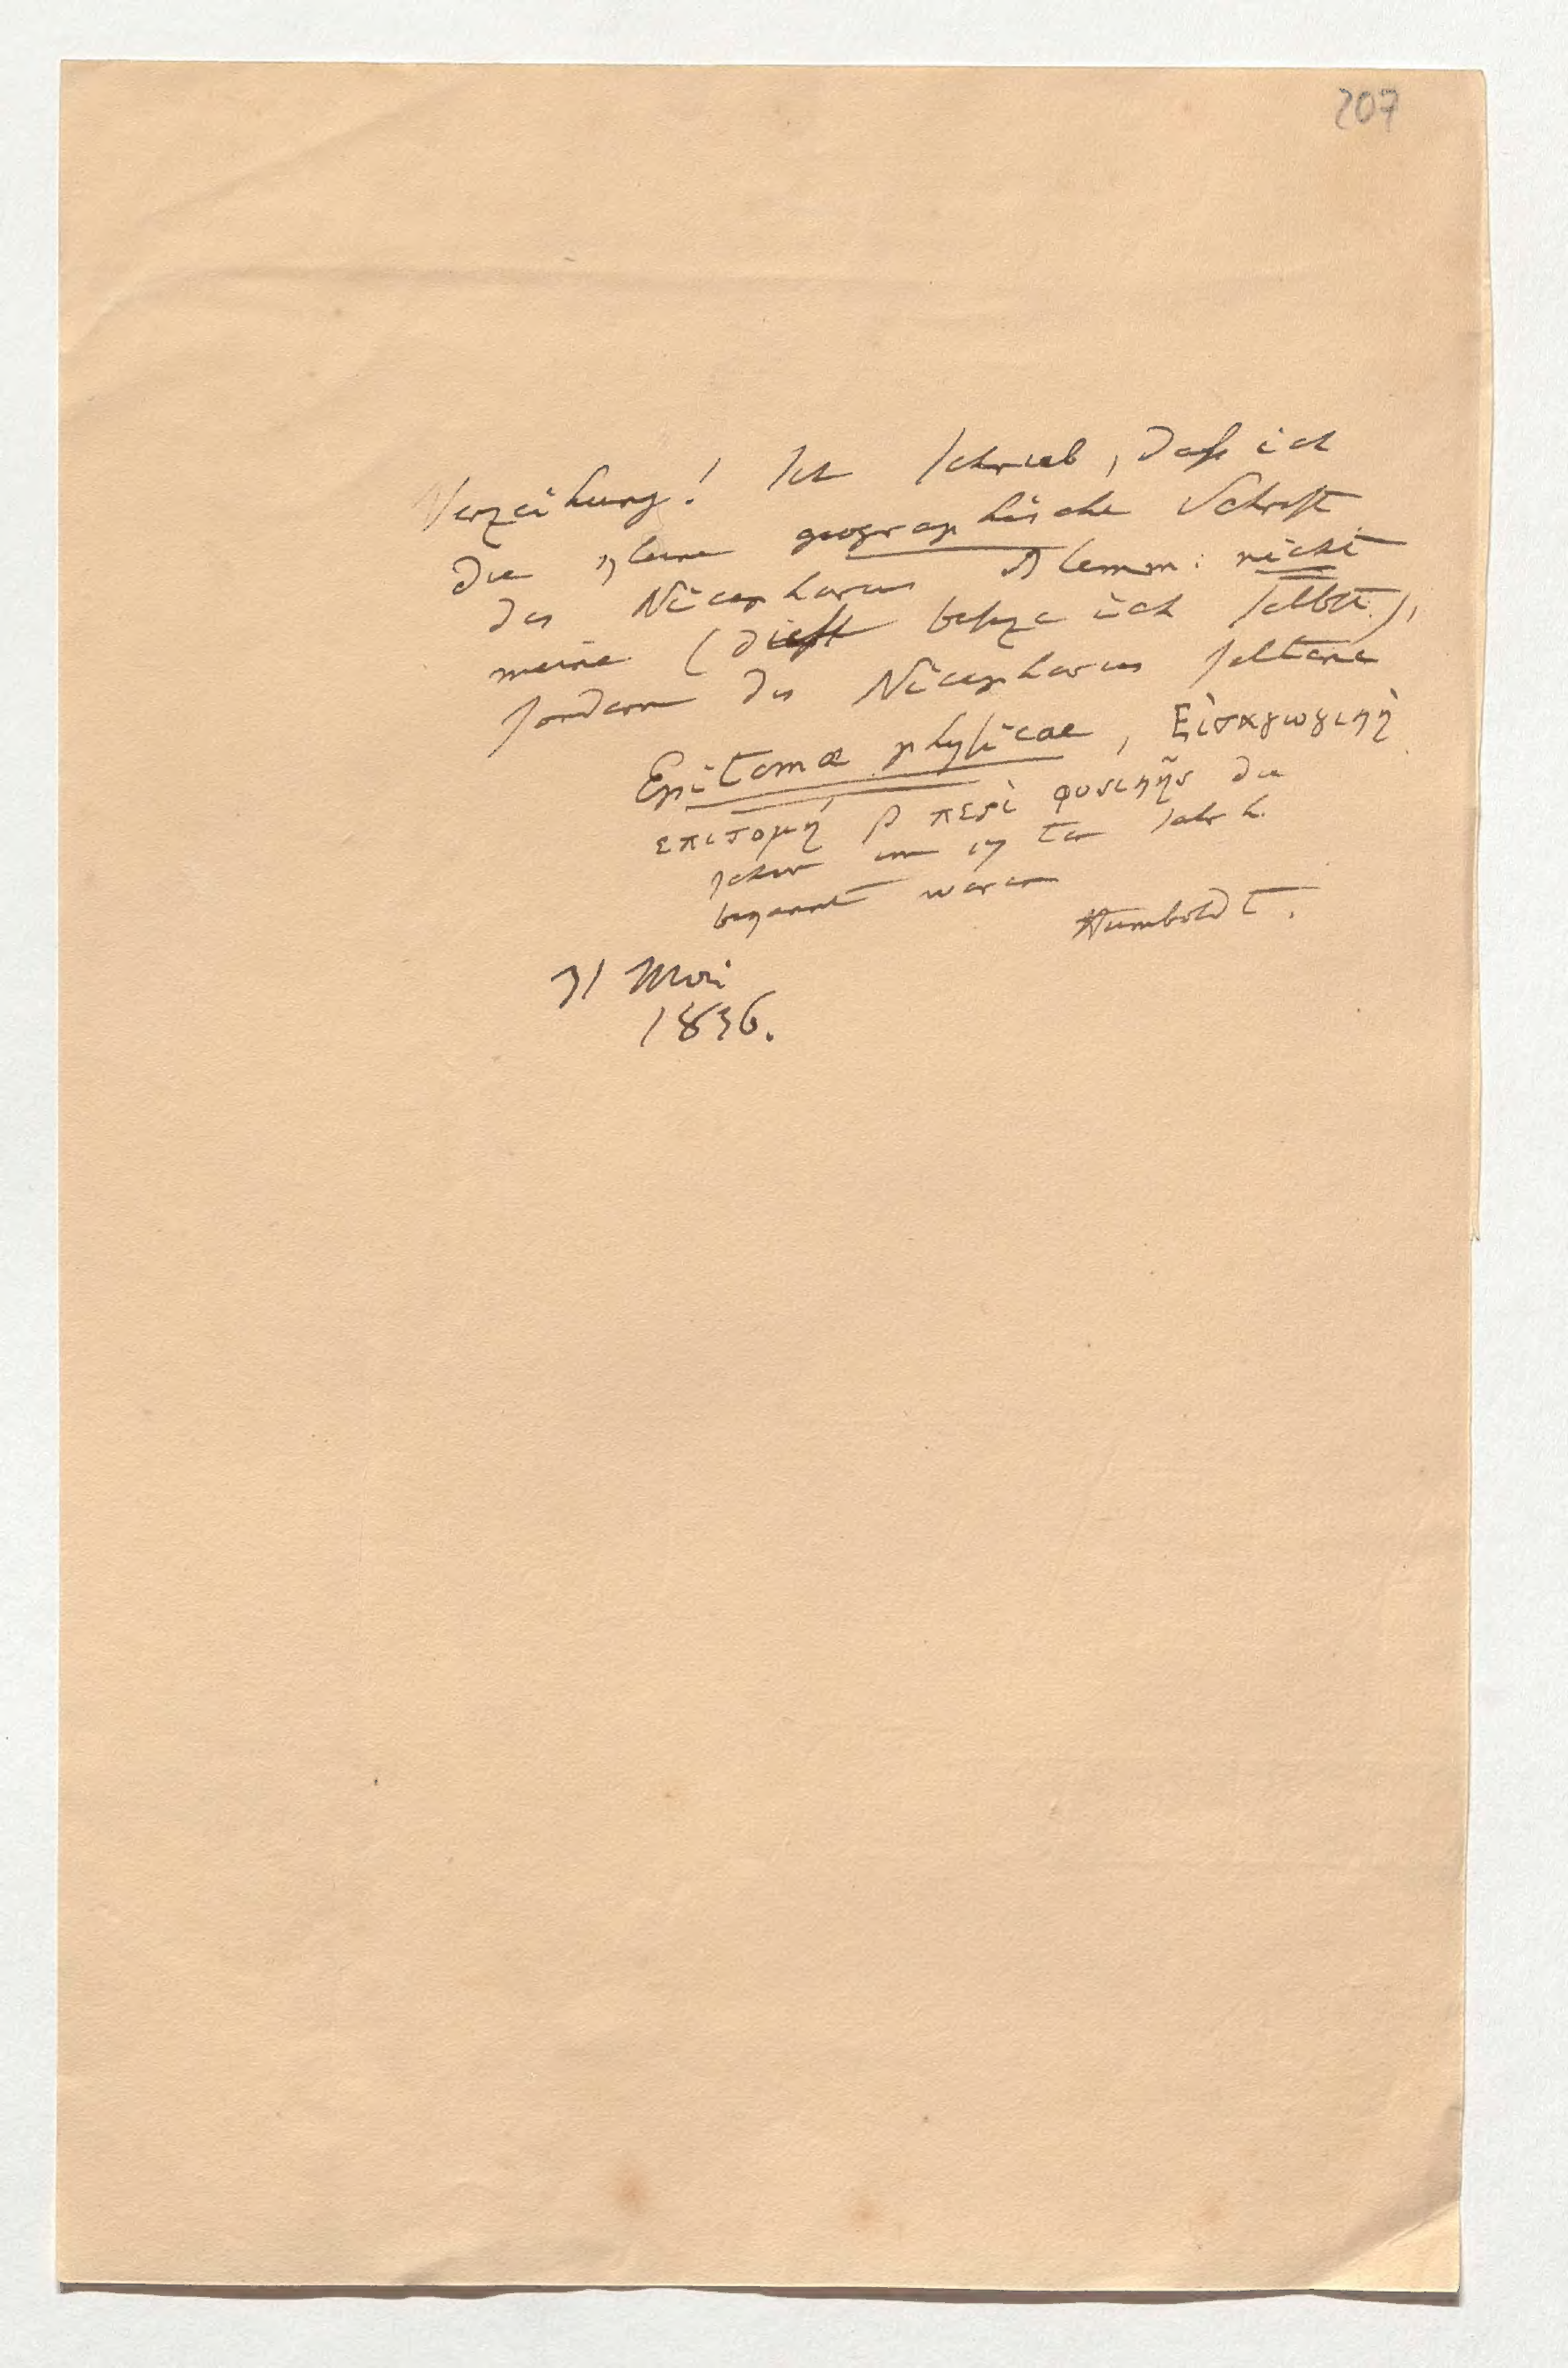 207
Verzeihung! Ich schrieb, daß ich
die kleine geographische Schrift
des Nicephorus Blemm: nicht
meine (diese besize ich selbst),
sondern des Nicephorus seltene
Epitomæ physicae, Εἰσαγωγικὴ
επιτομή β περὶ φυσικῆς die
schon im 17 ten Jahrh.
bekannt waren
Humboldt.
31 Mai
1836.